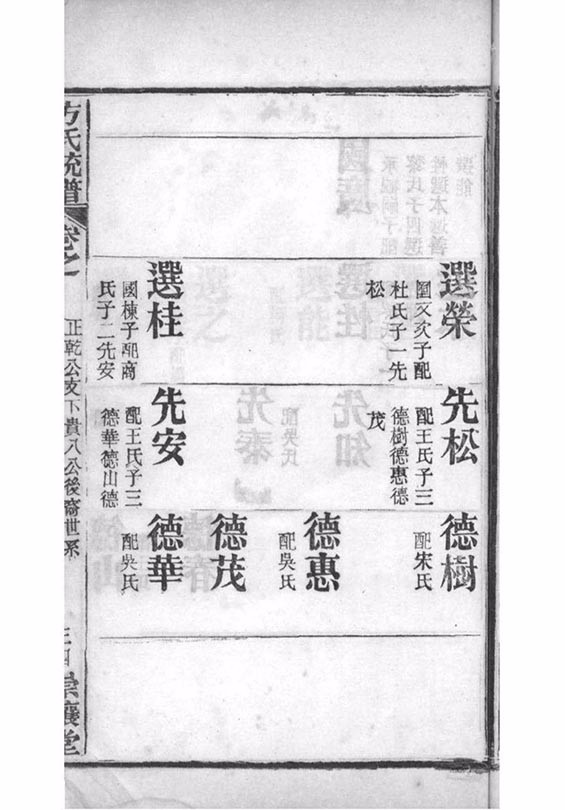 選榮
國文次子配
杜氏子一先
松
選桂
國棟子配商
氏子二先安
先松
配王氏子三
德樹德惠德
茂
先安
配王氏子三
德華德山德
德樹
配宋氏
德惠
配吳氏
德茂
德華
配吳氏
方氏統譜
卷之
正乾公支下貴八公後裔世系
崇讓堂